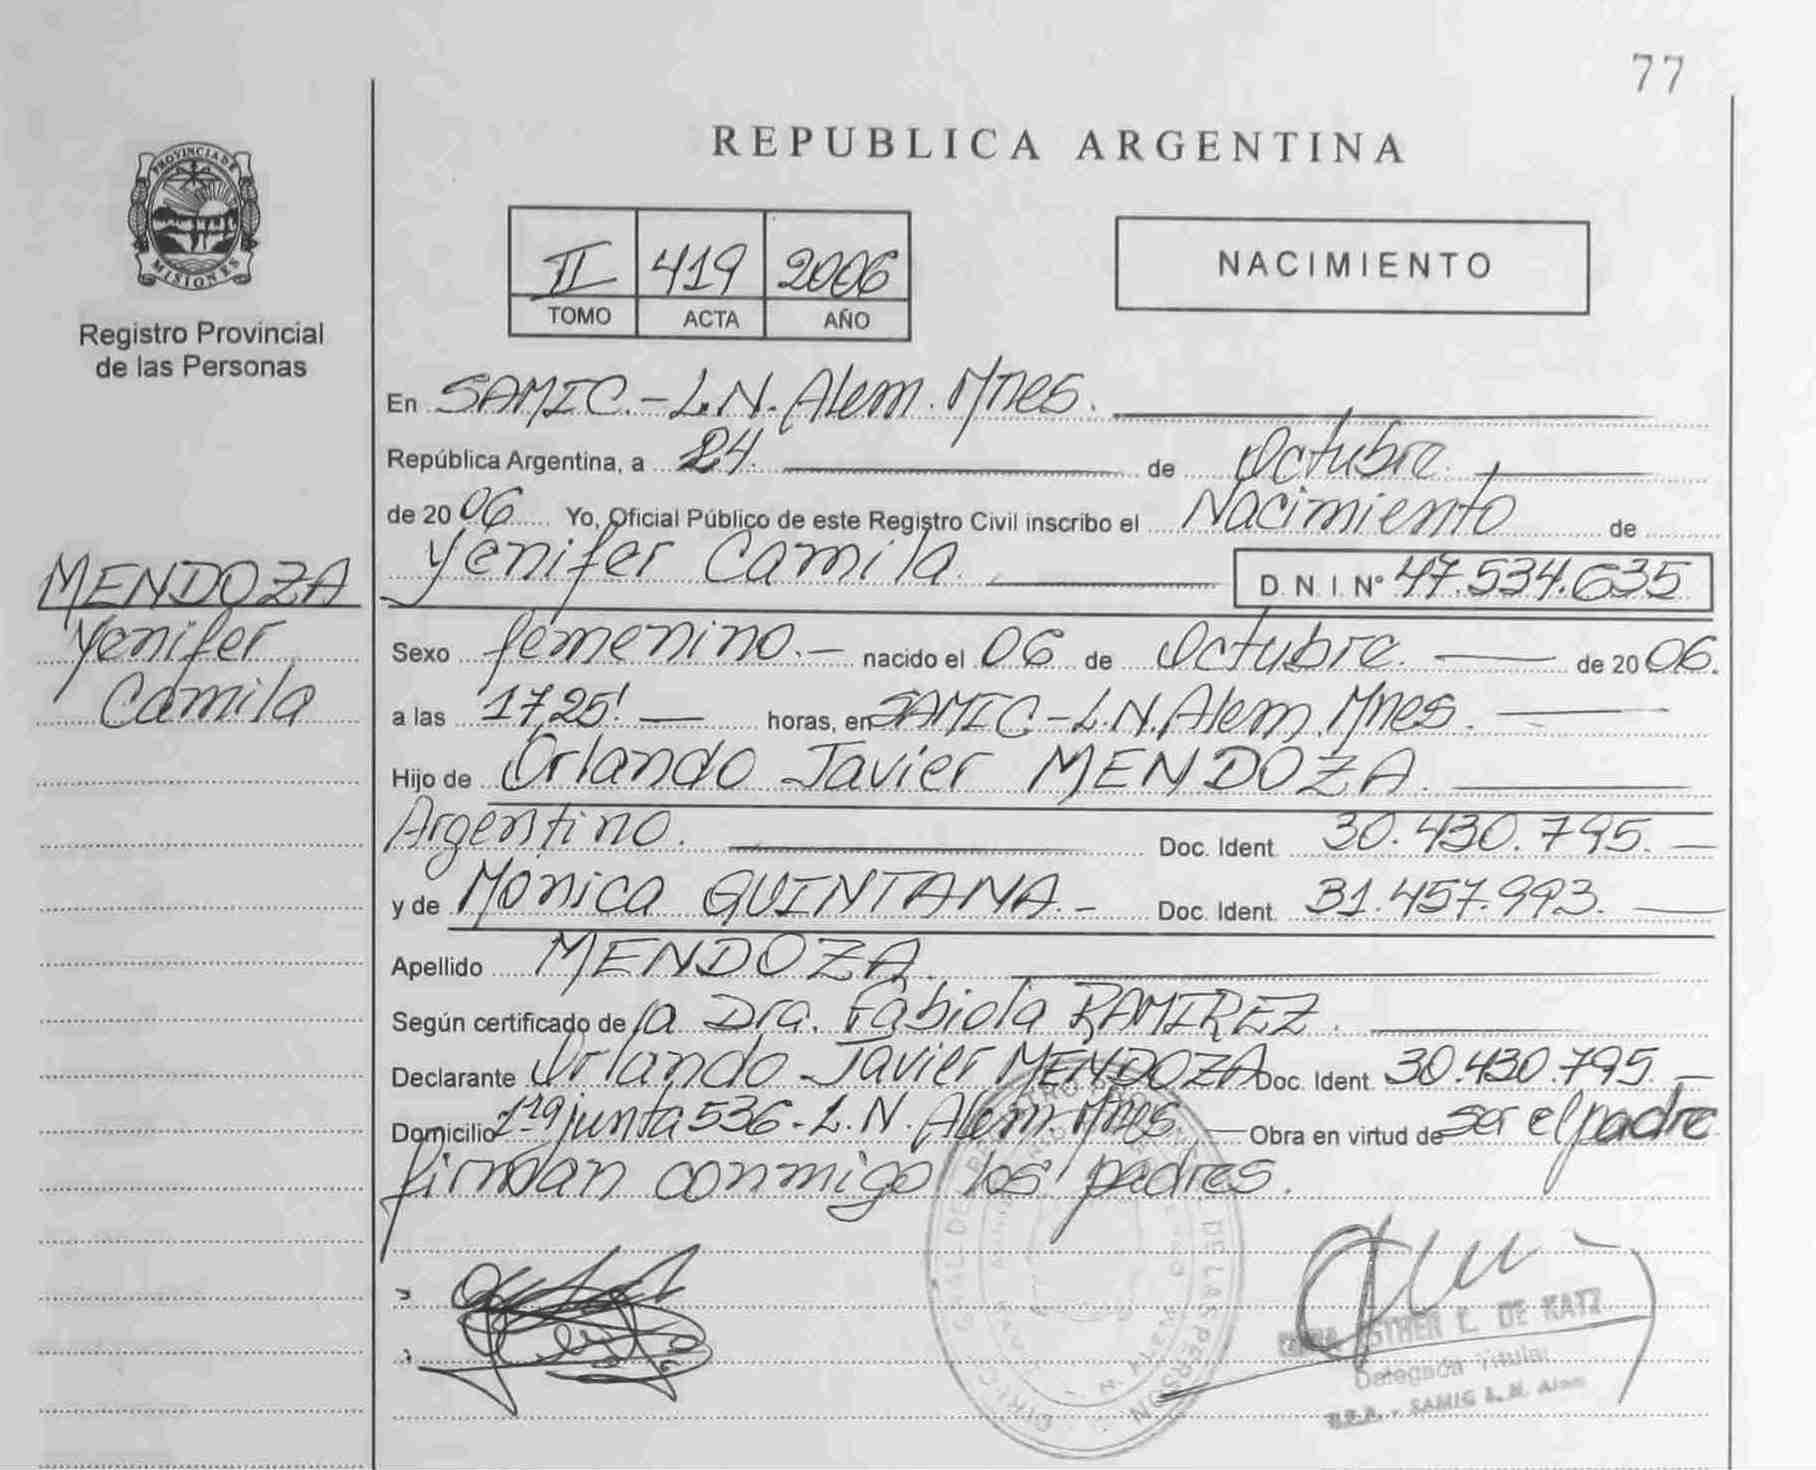 77
REPUBLICA ARGENTINA
PROVINCIA DE
MISIONES
Registro Provincial
de las Personas
II 419 2006
TOMO ACTA AÑO
NACIMIENTO
En SAMIC.-L.N. Alem. Mnes.
República Argentina, a 24. de Octubre.
de 2006 Yo, Oficial Público de este Registro Civil inscribo el Nacimiento de
Yenifer Camila. D.N.I. Nº 47.534.635
MENDOZA
Yenifer
Camila
Sexo femenino.- nacido el 06 de Octubre. de 2006.
a las 17,25'. horas, en SAMIC-L.N. Alem, Mnes.
Hijo de Orlando Javier MENDOZA.
Argentino. Doc. Ident. 30.430.795.
y de Monica QUINTANA.- Doc. Ident. 31.457.993.
Apellido MENDOZA.
Según certificado de la Dra. Fabiola RAMIREZ.
Declarante Orlando Javier MENDOZA Doc. Ident. 30.430.795.
Domicilio 1ra junta 536-L.N. Alem. Mnes. Obra en virtud de ser el padre
firman conmigo los padres.
ESTHER L. DE KATZ
Delegada Titular
SAMIC L. N. Alem